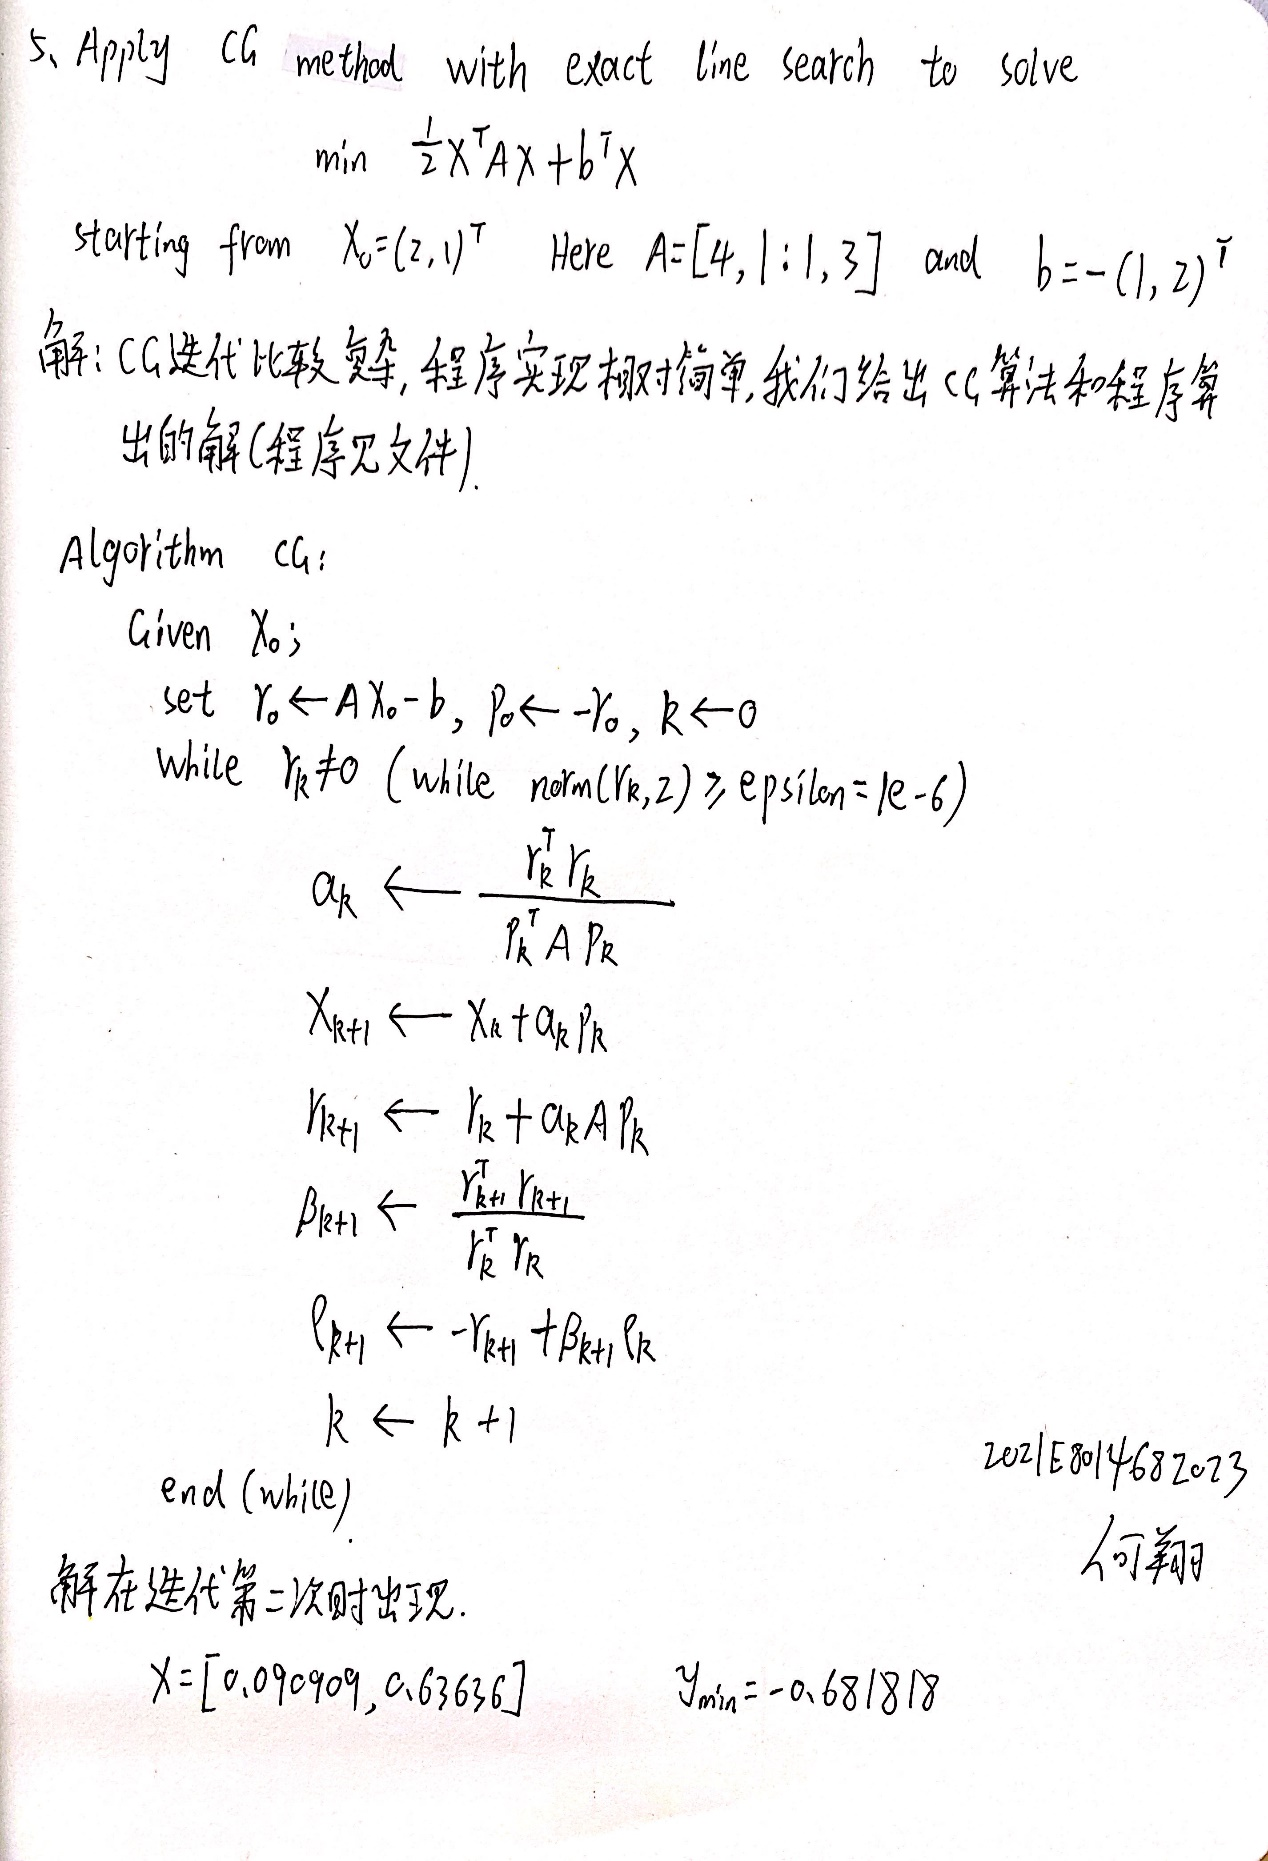 5、Apply CG method with exact line search to solve
min ½XᵀAX+bᵀX
starting from X₀=(2,1)ᵀ Here A=[4,1:1,3] and b=-(1,2)ᵀ
解:CG迭代比较复杂,程序实现相对简单,我们给出CG算法和程序算
出的解(程序见文件).
Algorithm CG:
Given X₀;
set r₀←AX₀-b, P₀←-r₀, k←0
while rₖ≠0 (while norm(rₖ,2)≥epsilon=1e-6)
aₖ ← rₖᵀrₖ / PₖᵀAPₖ
Xₖ₊₁ ← Xₖ+aₖPₖ
rₖ₊₁ ← rₖ+aₖAPₖ
βₖ₊₁ ← rₖ₊₁ᵀrₖ₊₁ / rₖᵀrₖ
ρₖ₊₁ ← -rₖ₊₁+βₖ₊₁ρₖ
k ← k+1
end(while)
2021E8014682023
何翔
解在迭代第二次时出现.
X=[0.090909,0.63636] yₘᵢₙ=-0.681818